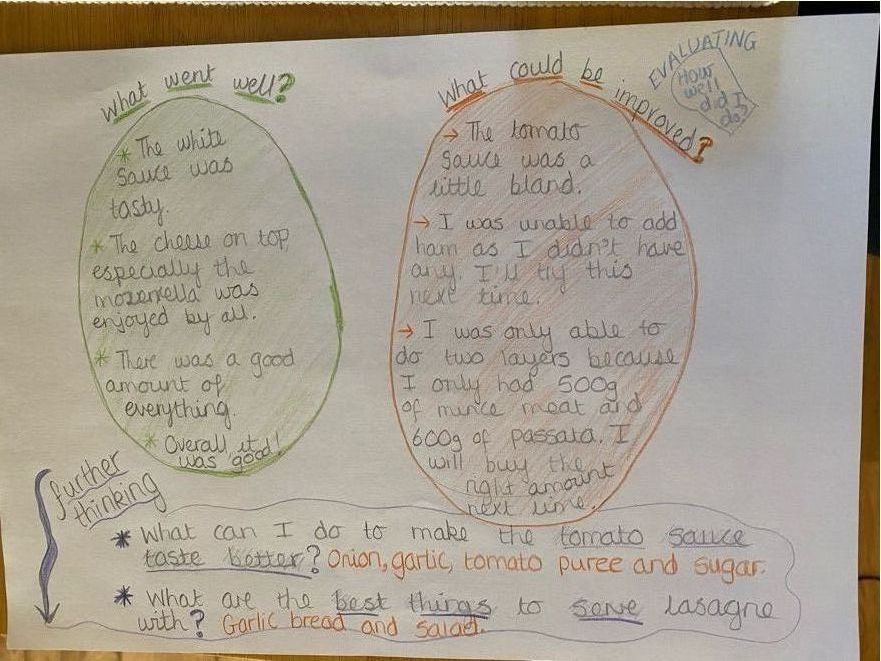 What went well?
* The white
sauce was
tasty.
* The cheese on top,
especially the
mozerrella was
enjoyed by all.
* There was a good
amount of
everything.
* Overall it
was good!
What could be improved?
→ The tomato
sauce was a
little bland.
→ I was unable to add
ham as I didn't have
any. I'll try this
next time.
→ I was only able to
do two layers because
I only had 500g
of mince meat and
600g of passata. I
will buy the
right amount
next time.
EVALUATING
How
well
did I
do?
further
thinking
* What can I do to make the tomato sauce
taste better? Onion, garlic, tomato puree and sugar.
* What are the best things to serve lasagne
with? Garlic bread and salad.